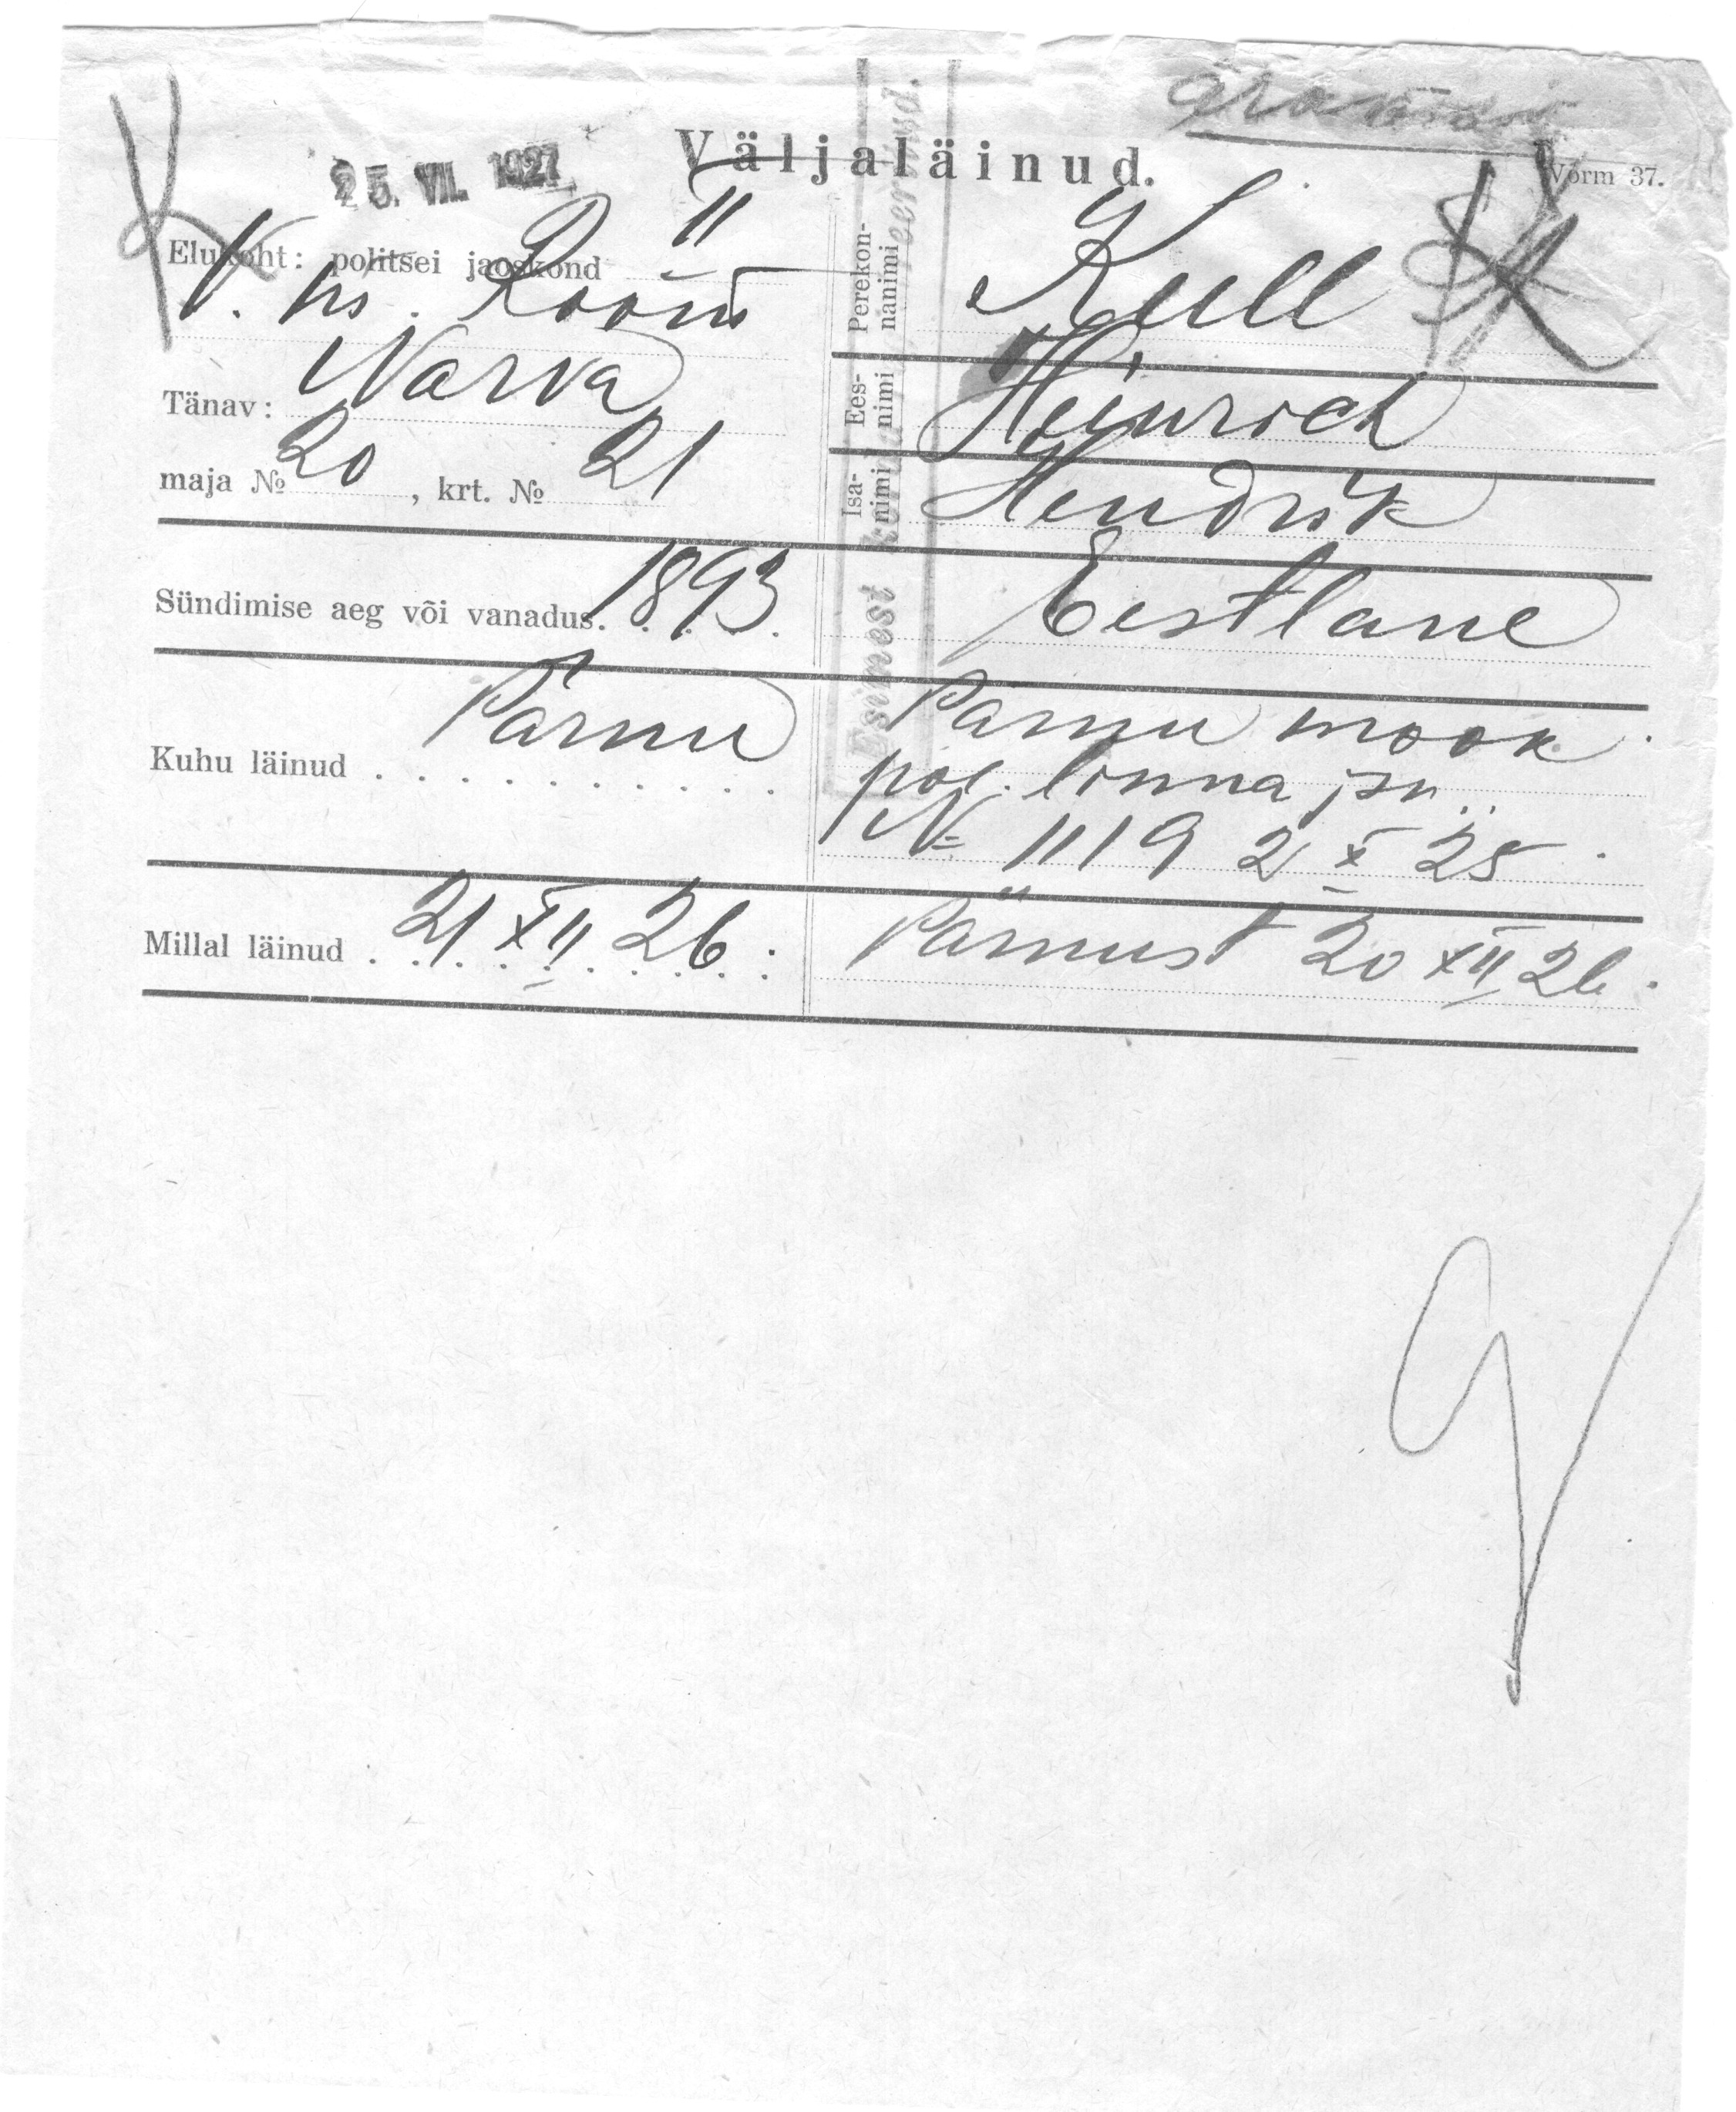 25. VII. 1927
Väljaläinud.
Vorm 37.
Elukoht: politsei jaoskond II
V. hs. Rööm
Tänav: Narva
maja № 20, krt. № 21
Sündimise aeg või vanadus. 1893
Kuhu läinud Pärnu
Millal läinud 21 XII 26.
Perekon-
nanimi Kull
Ees-
nimi Heinrich
Isa-
nimi Hendrik
Eestlane
Pärnu maak.
pol. linna jsk.
№ 1119 2 X 25.
Pärnust 20 XII 26.
Esimest